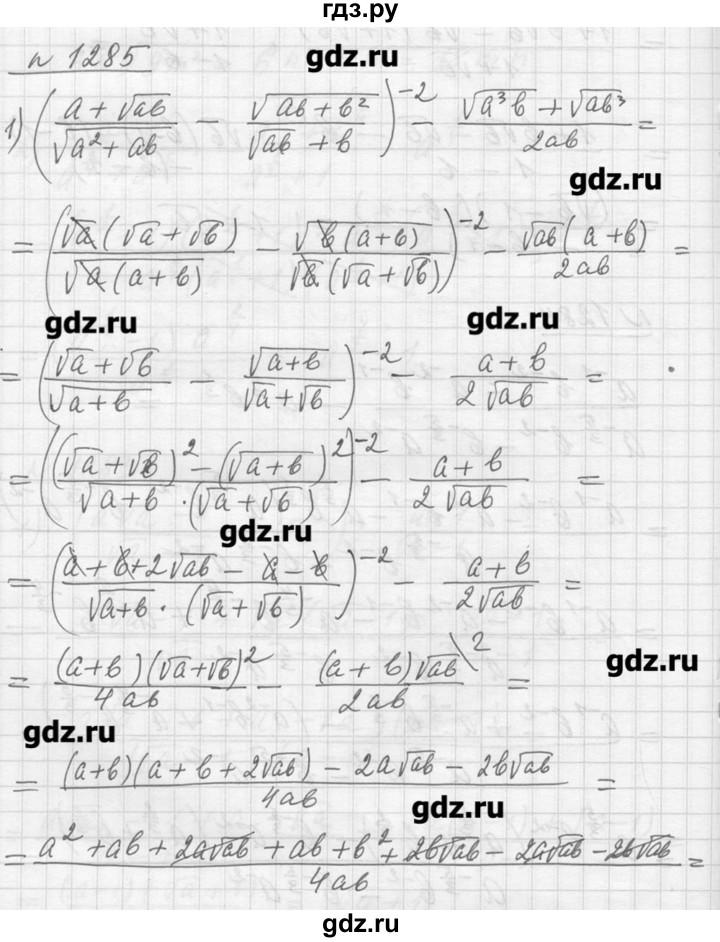 гдз.ру
n 1285
gdz.ru
1) ((a + √ab)/√(a² + ab) − √(ab + b²)/(√ab + b))⁻² − (√(a³b) + √(ab³))/(2ab) =
gdz.ru
= (√a(√a + √b)/√(a(a + b)) − √(b(a + b))/(√b(√a + √b)))⁻² − √ab(a + b)/(2ab) =
gdz.ru gdz.ru
= ((√a + √b)/√(a + b) − √(a + b)/(√a + √b))⁻² − (a + b)/(2√ab) =
= (((√a + √b)² − (√(a + b))²)/(√(a + b) · (√a + √b)))⁻² − (a + b)/(2√ab) =
gdz.ru
= ((a + b + 2√ab − a − b)/(√(a + b) · (√a + √b)))⁻² − (a + b)/(2√ab) =
= (a + b)(√a + √b)²/(4ab) − (a + b)√ab\²/(2ab) =
gdz.ru
gdz.ru
= ((a + b)(a + b + 2√ab) − 2a√ab − 2b√ab)/(4ab) =
gdz.ru
= (a² + ab + 2a√ab + ab + b² + 2b√ab − 2a√ab − 2b√ab)/(4ab) =
gdz.ru